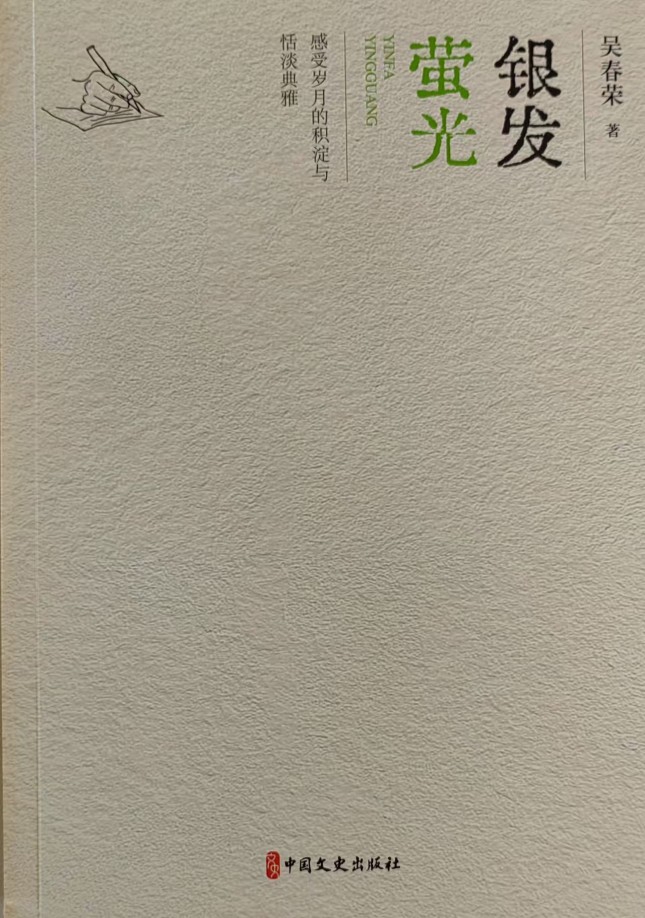 吴春荣 著
银发
萤光
YINFA
YINGGUANG
感受岁月的积淀与
恬淡典雅
文史
中国文史出版社